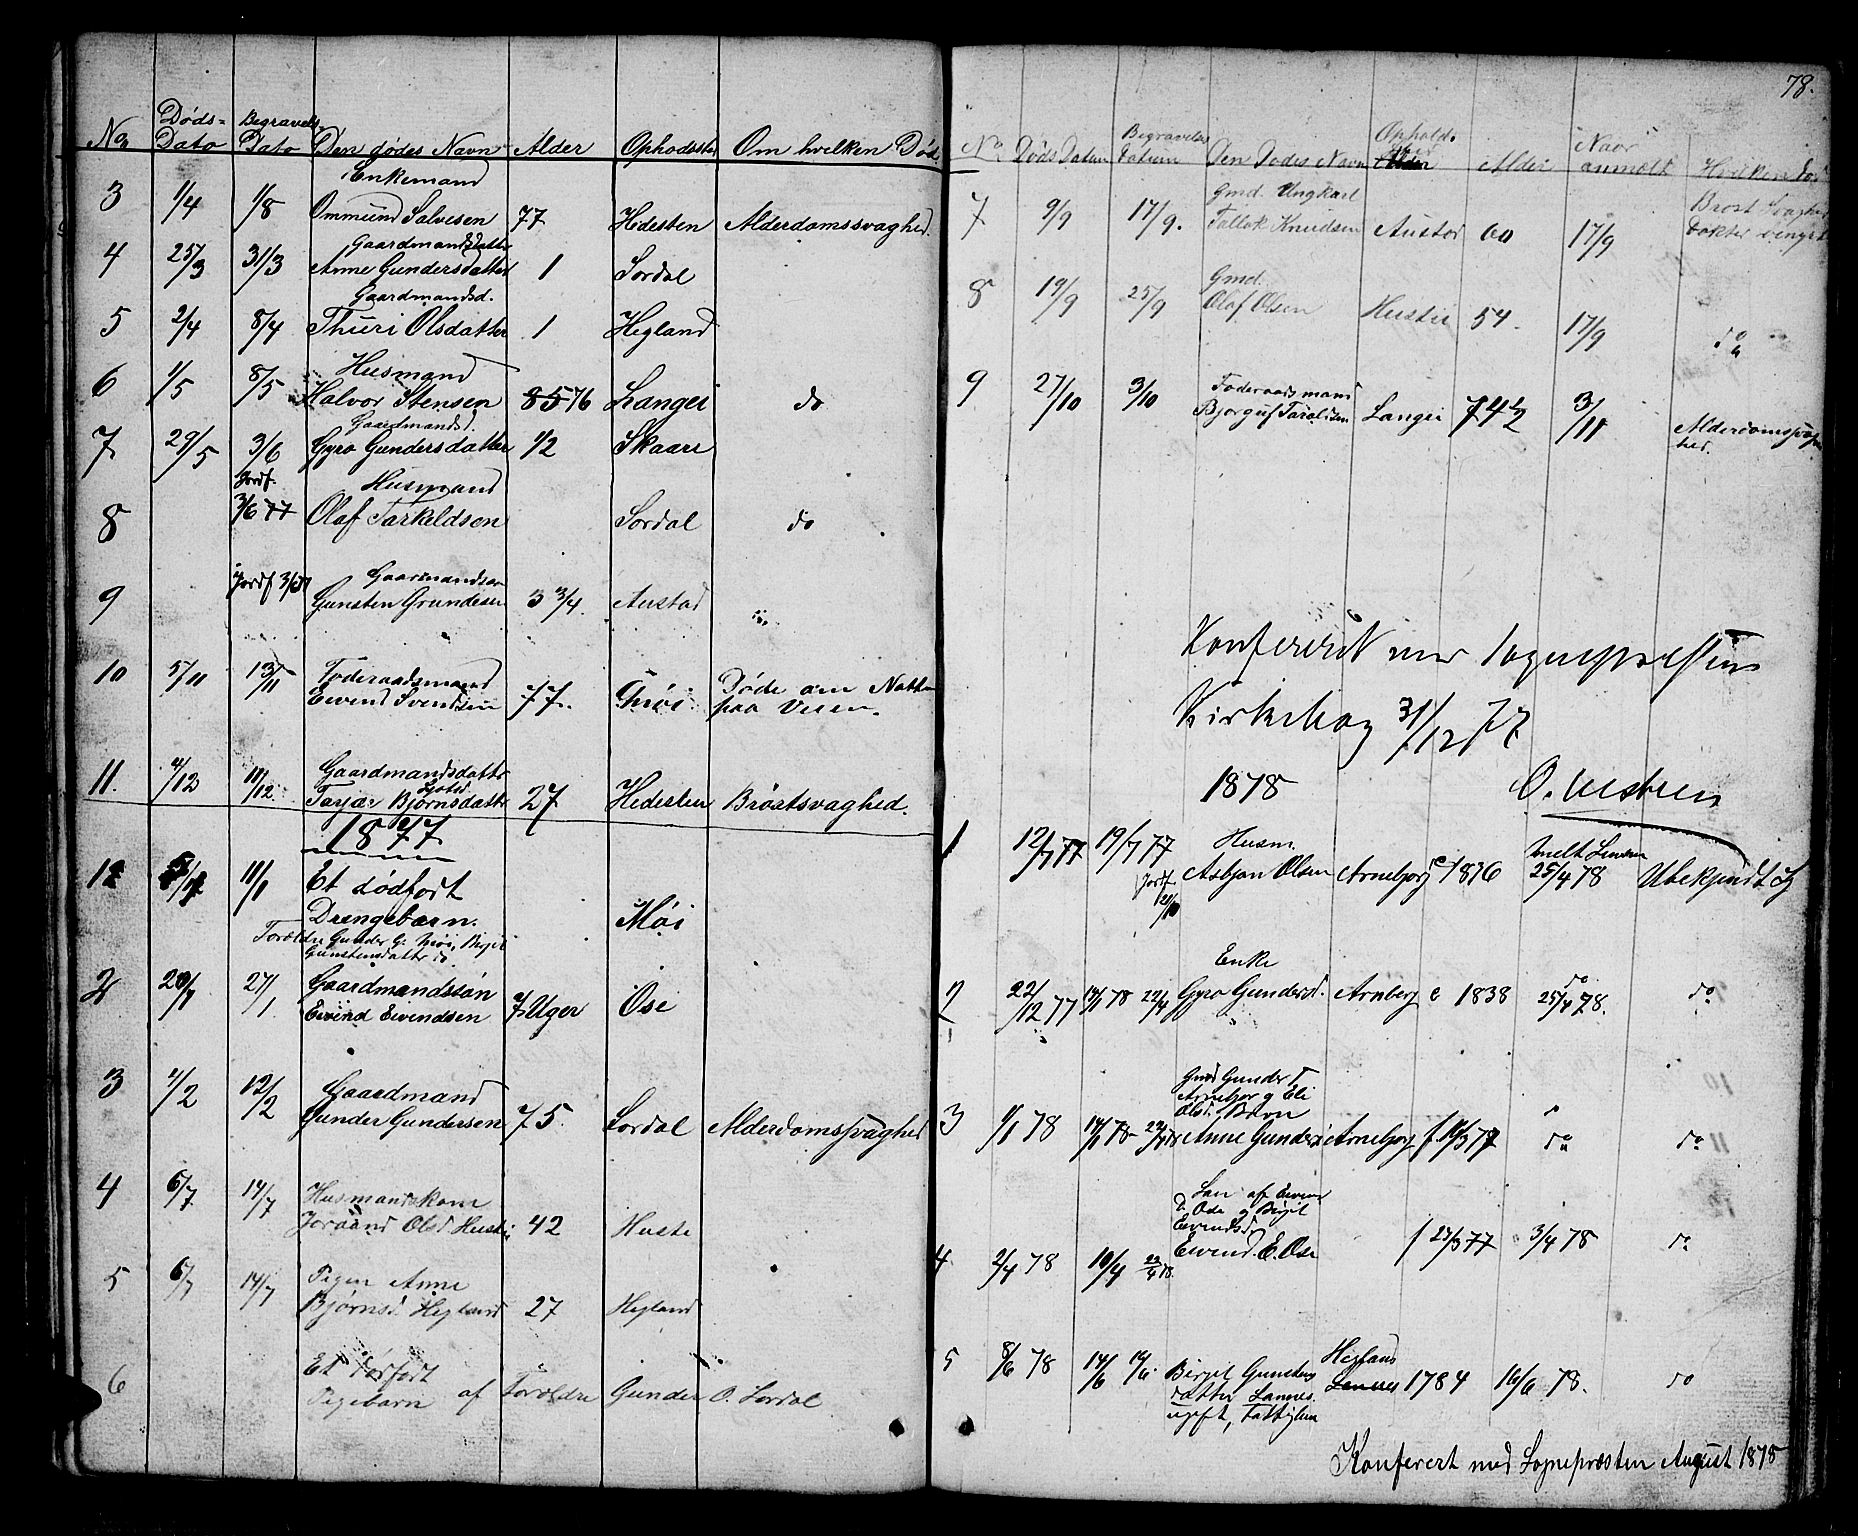 No Døds-Dato Begravels-Dato Den dødes Navn Alder Ophodssted Om hvilken Død
Enkemand
3 1/4 1/8 Ommund Salvesen 77 Hedesten Alderdomssvaghed.
Gaardmandsdatter
4 25/3 31/3 Anne Gundersdatter 1 Sordal
Gaardmandsd.
5 2/4 8/4 Thuri Olsdatter 1 Hegland
Husmand
6 1/5 8/5 Halvor Stensen 85 76 Langei do
Gaardmandsd.
7 29/5 3/6 Gyro Gundersdatter 1/2 Skaare
Jordf. Husmand
8 3/6 77 Olaf Tarkeldsen Sordal do
Gaardmandsøn
9 Jordf 3/6 Gunsten Grundesen 3 3/4. Austad
10 5/11 13/11 Føderaadsmand
Eivend Svendsen 77. Møi Døde om Natten
paa Veien.
Gaardmandsdatter
11. 4/12 11/12 Tarjær Bjørnsdatter 27 Hedesten Brøstsvaghed.
1877
12 11/1 Et dødfødt
Drengebarn. Møi
Forældre Gunder G. Møi, Birgit
Gunstensdatter do
2 20/1 27/1 Gaardmandssøn
Eivind Eivendsen 7 Uger Ose
3 4/2 12/2 Gaardmand
Gunder Gundersen 75. Sordal Alderdomssvaghed
4 6/7 14/7 Husmandskone
Joraand Olsd Huste 42 Huste
5 6/7 14/7 Pigen Anne
Bjørnsd. Hegland 27 Hegland
6 Et dødfødt
Pigebarn af Forældre Gunder O. Sordal
78.
No Døds Datum Begravelses Datum Den Dødes Navn Opholds sted Alder Alder Naar anmeldt Hvilken Død
Gmd. Ungkarl Brøst Svaghed
7 9/9 17/9. Tallak Knudsen Austad 60 17/9 Dokter benyt
Gmd.
8 19/9 25/9 Olaf Olsen Hustei 54. 17/9 do
9 27/10 3/10 Føderaadsmand
Bjorguf Taraldsen Langei 74 1/2 3/11 Alderdomssvag
hed.
Konfereret med Sognepræstens
Kirkebog 31/12 77
1878 O. Uestren
Husm.
1 12/7 77 19/7 77 Asbjøn Olsen Arnebjorg c 1876 25/4 78 Ubekjendt Sg
Jordf
21/10
Enke do
2 22/12 77 14/1 78 22/4 Gyro Gundersd. Arnberg c 1838 25/4 78. do
Gmd Gunder T
Arnebjor g Eli
Olsd. Barn
3 1/1 78 14/1 78 22/4 78 Anne Gundersd Arnebjorg f 14/3 77 do do
Søn af Eivend
E Ose og Birgit
Eivendsd
4 2/4 78 10/4 22/4 78. Eivend E. Ose f 23/3 77 3/4 78 do
5 8/6 78 14/6 14/6 Birgit Gunstens Hegland
datter Lannes Lannes 1784 16/6 78. do
ugift, Fattiglem
Konferert med Sognepræsten August 1878